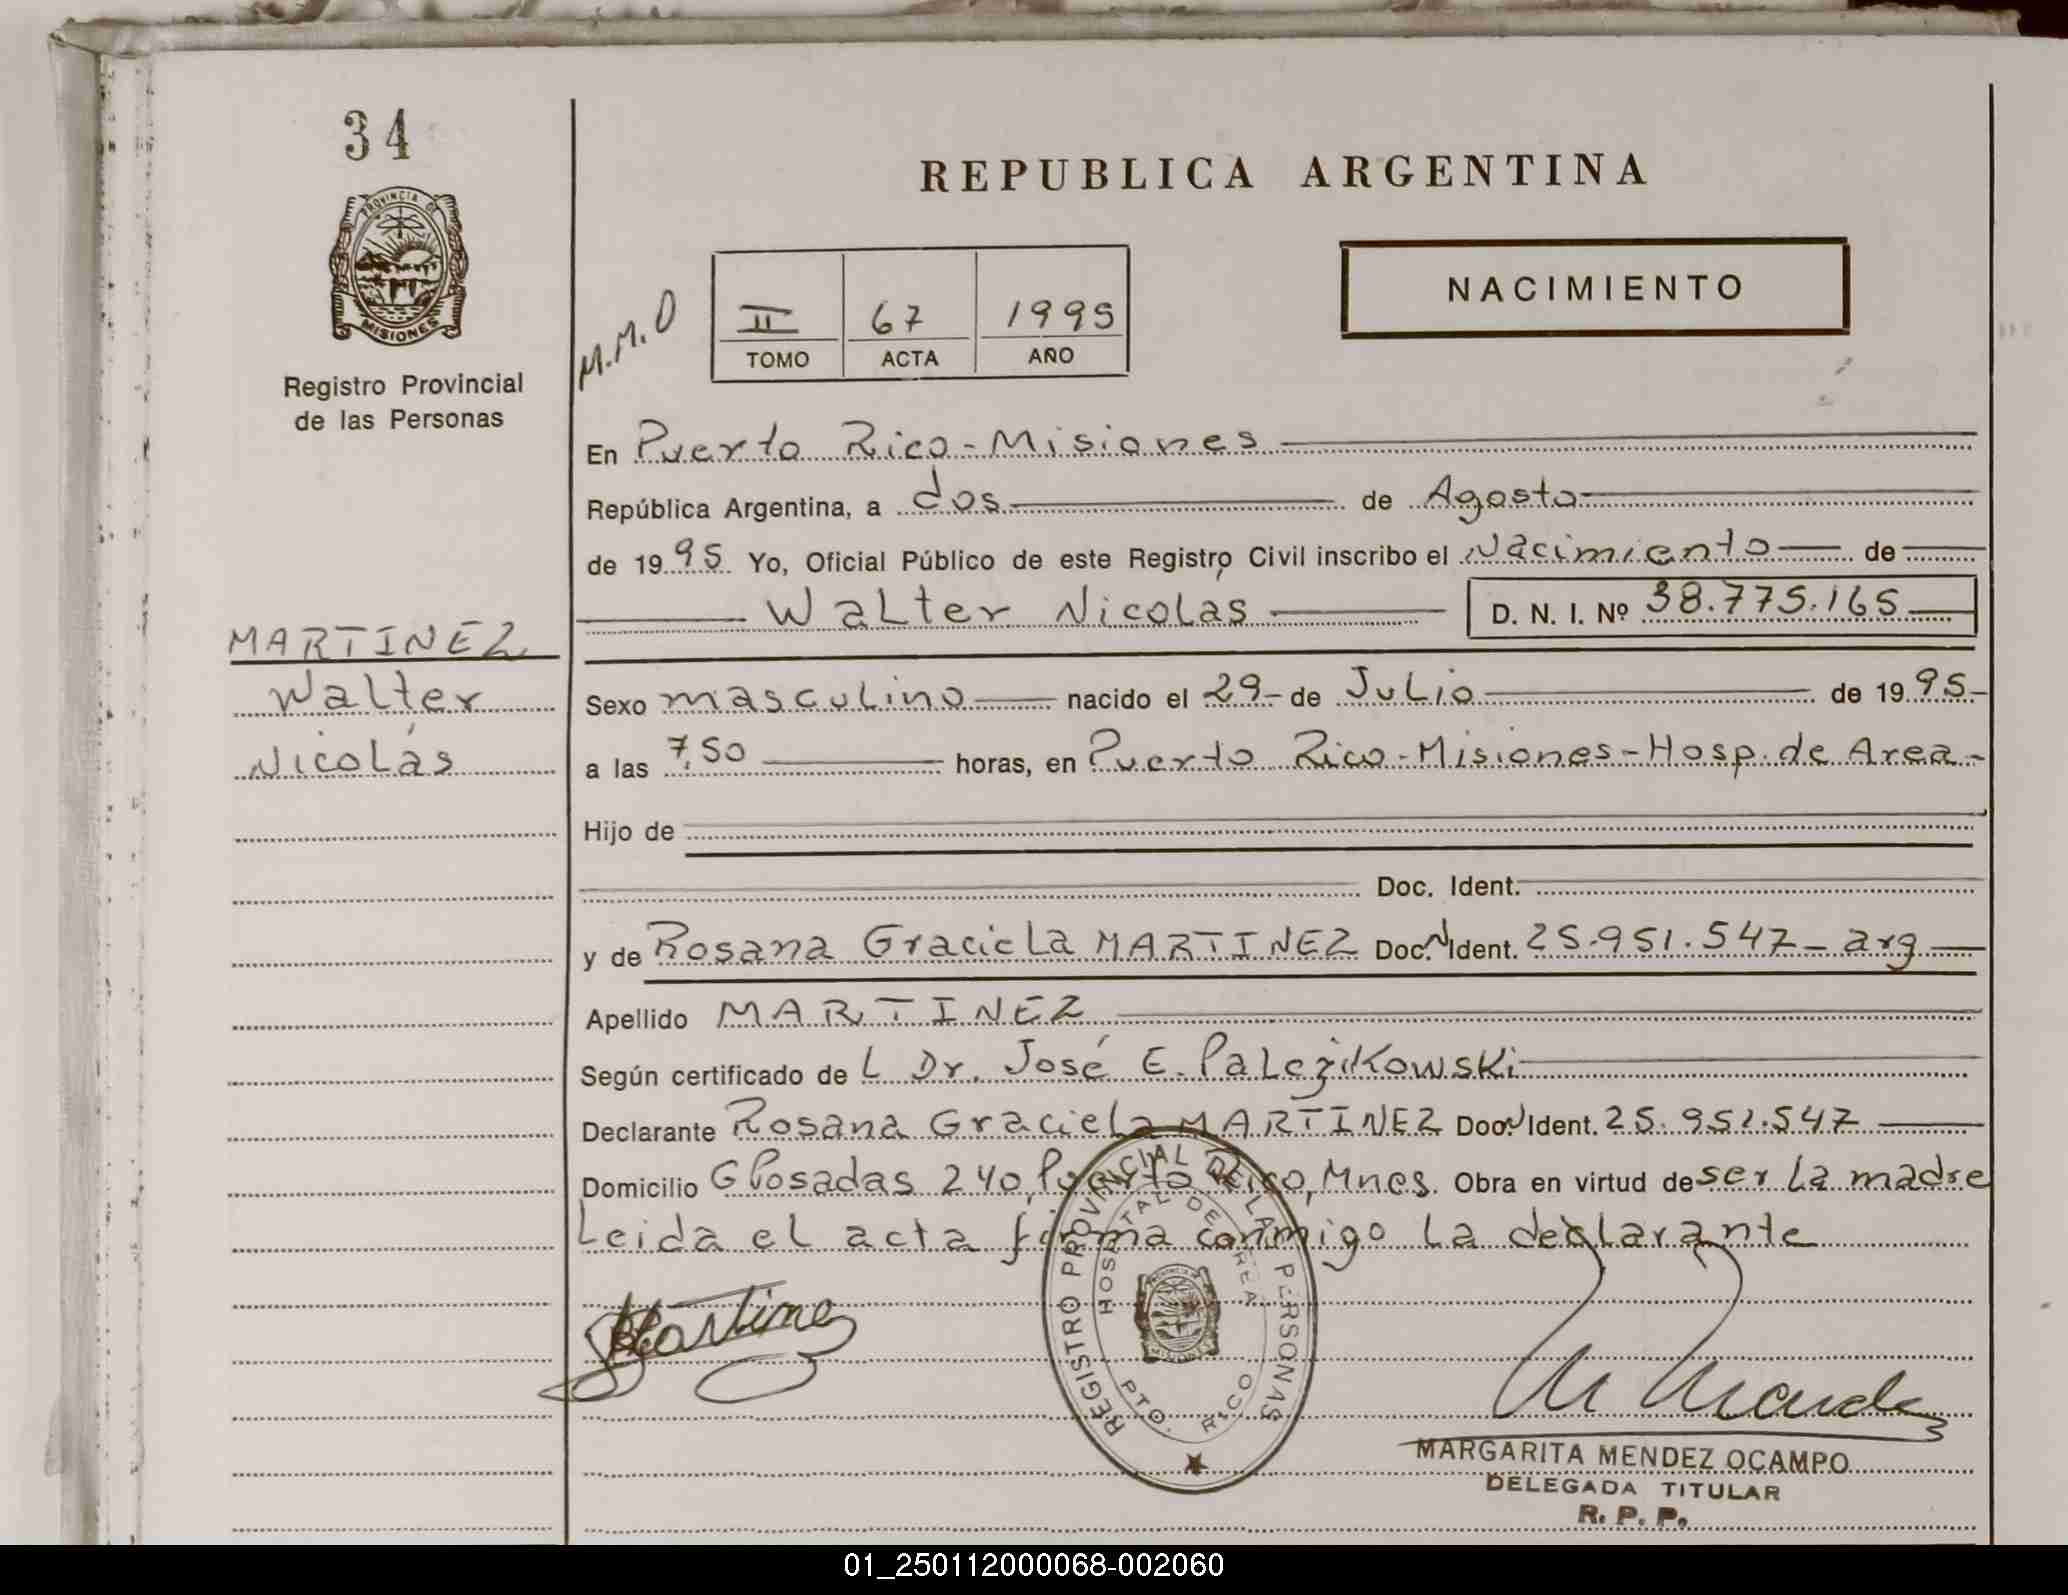 34
PROVINCIA DE
MISIONES
Registro Provincial
de las Personas
REPUBLICA ARGENTINA
NACIMIENTO
M.M.O
II 67 1995
TOMO ACTA AÑO
En Puerto Rico - Misiones
República Argentina, a dos de Agosto
de 1995 Yo, Oficial Público de este Registro Civil inscribo el Nacimiento de
Walter Nicolás D. N. I. Nº 38.775.165
MARTINEZ
Walter
Nicolás
Sexo masculino nacido el 29 - de Julio de 1995 -
a las 7,50 horas, en Puerto Rico - Misiones - Hosp. de Area -
Hijo de
Doc. Ident.
y de Rosana Graciela MARTINEZ Doc. N Ident. 25.951.547 - arg
Apellido MARTINEZ
Según certificado de L Dr. José E. Palczikowski
Declarante Rosana Graciela MARTINEZ Doc. N Ident. 25.951.547
Domicilio G Posadas 240, Puerto Rico, Mnes. Obra en virtud de ser la madre
Leida el acta firma conmigo la declarante
Martinez
REGISTRO PROVINCIAL DE LAS PERSONAS
HOSPITAL DE AREA
PTO. RICO
MARGARITA MENDEZ OCAMPO
DELEGADA TITULAR
R. P. P.
01_250112000068-002060